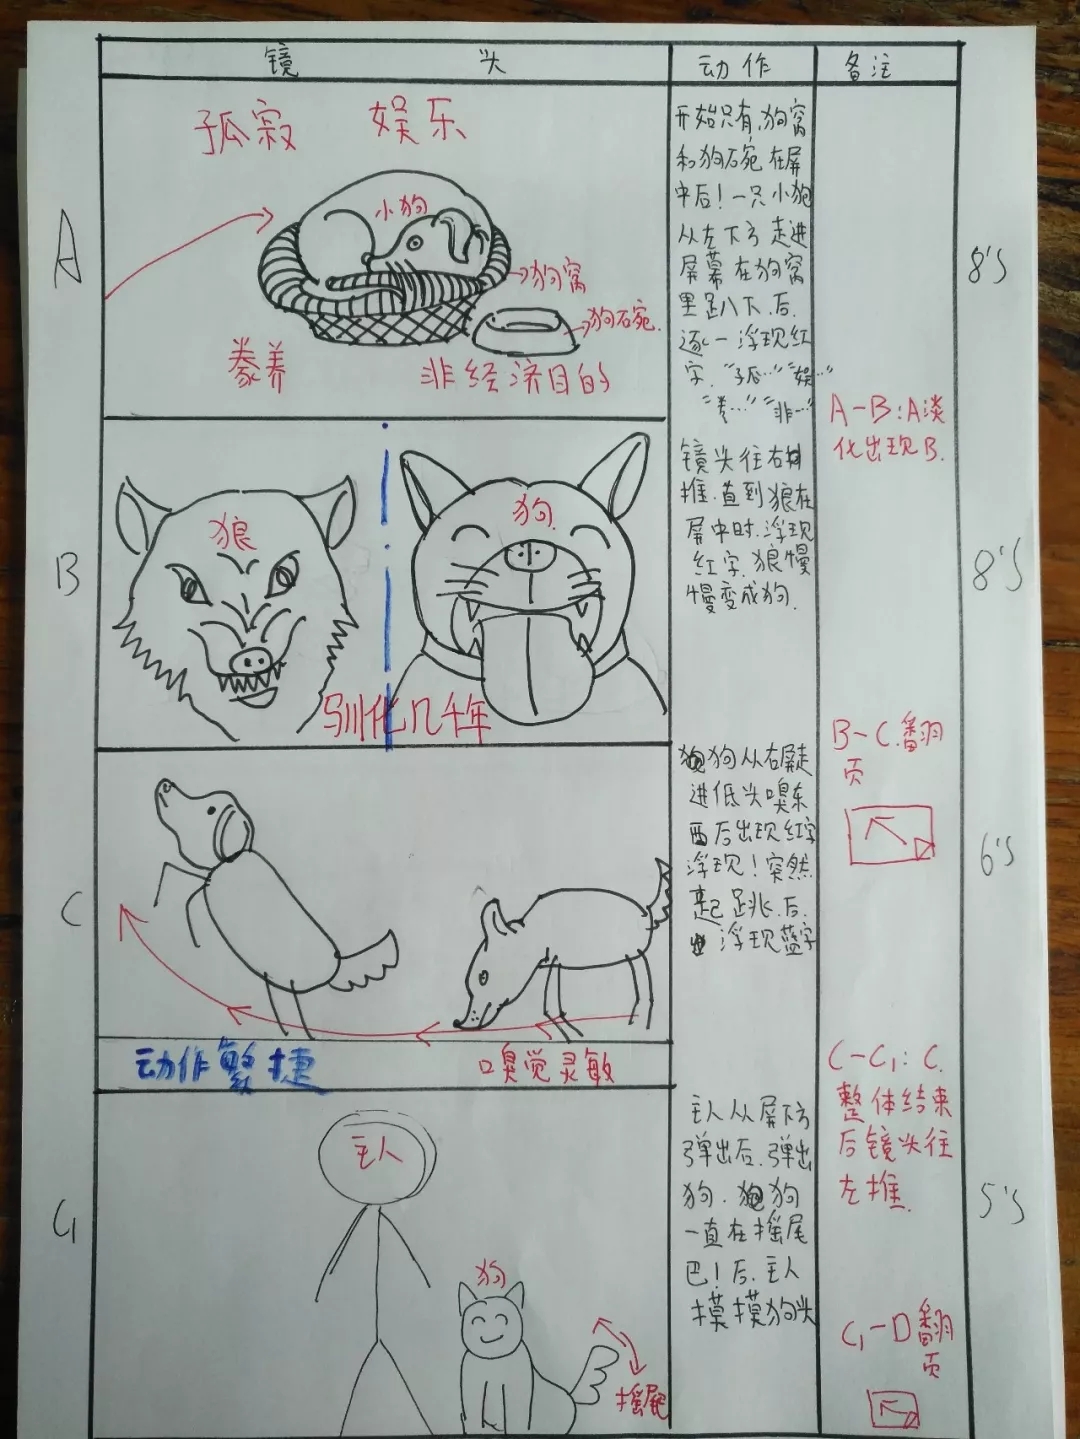 镜 头 动作 备注
A
孤寂 娱乐
小狗
狗窝
狗碗
豢养 非经济目的
开始只有,狗窝
和狗碗在屏
中后!一只小狗
从左下方走进
屏幕在狗窝
里趴下.后.
逐一浮现红
字."孤…""娱…"
"豢…""非…"
8'S
A-B:A淡
化出现B.
B
狼
狗
驯化几千年
镜头往右
推.直到狼在
屏中时.浮现
红字.狼慢
慢变成狗.
8'S
B-C.翻
页
C
动作繁捷 嗅觉灵敏
狗从右屏走
进低头嗅东
西后出现红字
浮现!突然
起跳.后.
浮现蓝字
6'S
C-C1:C.
整体结束
后镜头往
左推.
C1
主人
狗
摇尾巴
主人从屏下方
弹出后.弹出
狗.狗
一直在摇尾
巴!后.主人
摸摸狗头
5'S
C1-D翻
页